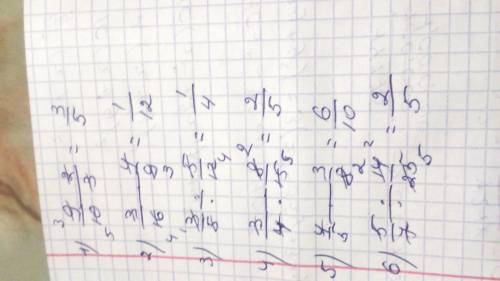 1) 9/10 2/3 = 3/5
2) 3/16 4/9 = 1/12
3) 3/5 · 5/12 = 1/4
4) 3/4 · 8/15 = 2/5
5) 4/5 3/8 = 6/10
6) 5/7 · 14/25 = 2/5